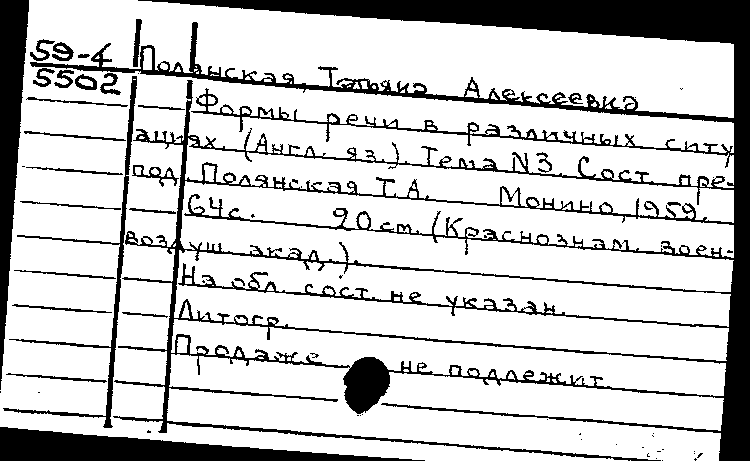 59-4
5502
Полянская, Татьяна Алексеевна
Формы речи в различных ситу
ациях. (Англ. яз.). Тема N3. Сост. пре-
под. Полянская Т.А. Монино, 1959.
64с. 20 см. (Краснознам. воен-
воздуш. акад.).
На обл. сост. не указан.
Литогр.
Продаже не подлежит